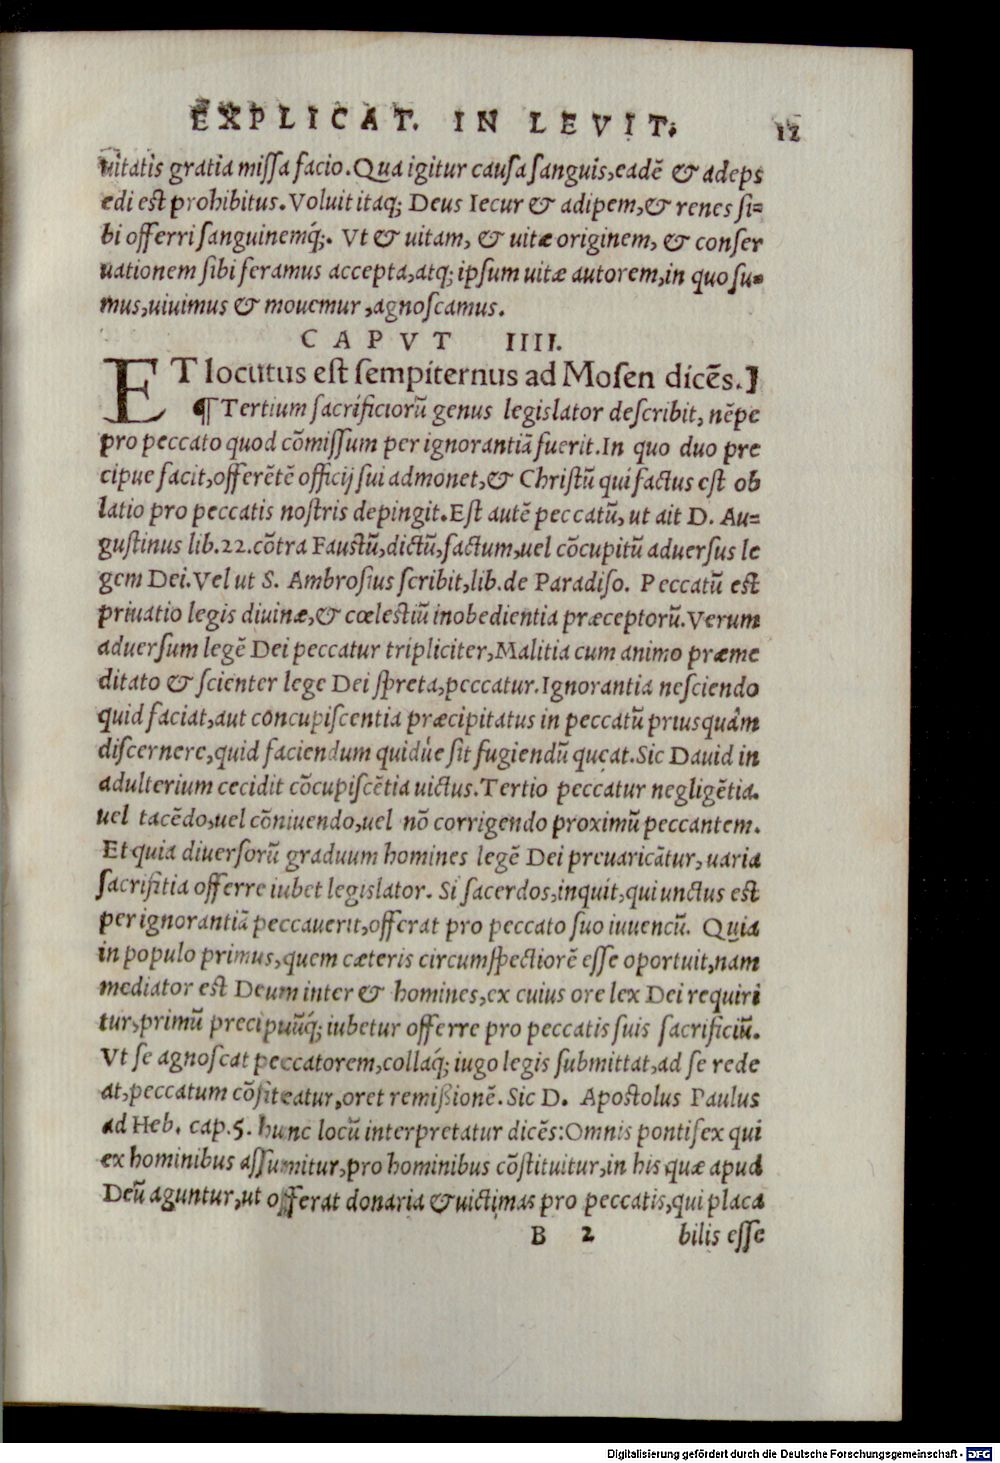 EXPLICAT. IN LEVIT. 12
uitatis gratia missa facio. Qua igitur causa sanguis, eadē & adeps
edi est prohibitus. Voluit itaq; Deus Iecur & adipem, & renes si=
bi offerri sanguinemq́;. Vt & uitam, & uitæ originem, & conser
uationem sibi feramus accepta, atq; ipsum uitæ autorem, in quo su=
mus, uiuimus & mouemur, agnoscamus.
CAPVT IIII.
ET locutus est sempiternus ad Mosen dicēs.]
¶ Tertium sacrificiorū genus legislator describit, nēpe
pro peccato quod cōmissum per ignorantiā fuerit. In quo duo pre
cipue facit, offerētē officij sui admonet, & Christū qui factus est ob
latio pro peccatis nostris depingit. Est autē peccatū, ut ait D. Au=
gustinus lib. 22. cōtra Faustū, dictū, factum, uel cōcupitū aduersus le
gem Dei. Vel ut S. Ambrosius scribit, lib. de Paradiso. Peccatū est
priuatio legis diuinæ, & cœlestiū inobedientia præceptorū. Verum
aduersum legē Dei peccatur tripliciter, Malitia cum animo præme
ditato & scienter lege Dei spreta, peccatur. Ignorantia nesciendo
quid faciat, aut concupiscentia præcipitatus in peccatū priusquàm
discernere, quid faciendum quidùe sit fugiendū queat. Sic Dauid in
adulterium cecidit cōcupiscētia uictus. Tertio peccatur negligētia.
uel tacēdo, uel cōniuendo, uel nō corrigendo proximū peccantem.
Et quia diuersorū graduum homines legē Dei preuaricātur, uaria
sacrifitia offerre iubet legislator. Si sacerdos, inquit, qui unctus est
per ignorantiā peccauerit, offerat pro peccato suo iuuencū. Quia
in populo primus, quem cæteris circumspectiorē esse oportuit, nam
mediator est Deum inter & homines, ex cuius ore lex Dei requiri
tur, primū precipuūq́; iubetur offerre pro peccatis suis sacrificiū.
Vt se agnoscat peccatorem, collaq́; iugo legis submittat, ad se rede
at, peccatum cōfiteatur, oret remißionē. Sic D. Apostolus Paulus
ad Heb. cap. 5. hunc locū interpretatur dicēs: Omnis pontifex qui
ex hominibus assumitur, pro hominibus cōstituitur, in his quæ apud
Deū aguntur, ut offerat donaria & uictimas pro peccatis, qui placa
B 2 bilis esse
Digitalisierung gefördert durch die Deutsche Forschungsgemeinschaft - DFG